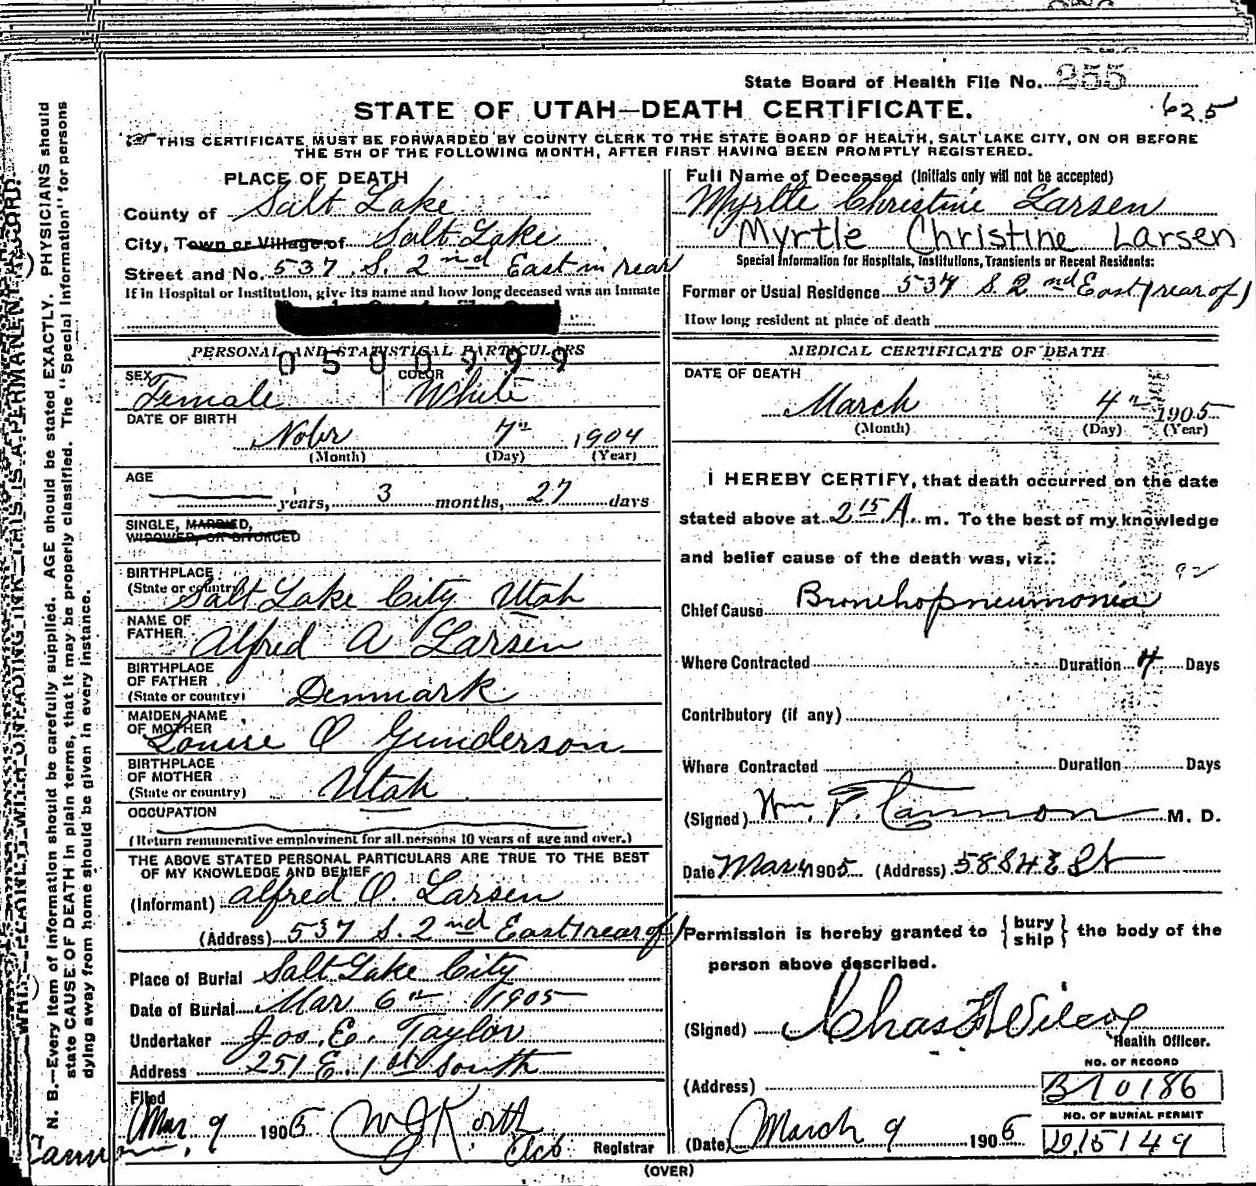 State Board of Health File No. 255
STATE OF UTAH—DEATH CERTIFICATE.
625
THIS CERTIFICATE MUST BE FORWARDED BY COUNTY CLERK TO THE STATE BOARD OF HEALTH, SALT LAKE CITY, ON OR BEFORE
THE 5TH OF THE FOLLOWING MONTH, AFTER FIRST HAVING BEEN PROMPTLY REGISTERED.
PLACE OF DEATH
County of Salt Lake
City, Town or Village of Salt Lake
Street and No. 537 S. 2nd East in rear
If in Hospital or Institution, give its name and how long deceased was an inmate
PERSONAL AND STATISTICAL PARTICULARS
0500999
SEX Female COLOR White
DATE OF BIRTH
Nobr 7" 1904
(Month) (Day) (Year)
AGE
years, 3 months, 27 days
SINGLE, MARRIED,
WIDOWED, OR DIVORCED
BIRTHPLACE
(State or country) Salt Lake City Utah
NAME OF
FATHER Alfred A Larsen
BIRTHPLACE
OF FATHER
(State or country) Denmark
MAIDEN NAME
OF MOTHER Louise O Gunderson
BIRTHPLACE
OF MOTHER
(State or country) Utah
OCCUPATION
(Return remunerative employment for all persons 10 years of age and over.)
THE ABOVE STATED PERSONAL PARTICULARS ARE TRUE TO THE BEST
OF MY KNOWLEDGE AND BELIEF
(Informant) Alfred O. Larsen
(Address) 537 S. 2nd East (rear of)
Place of Burial Salt Lake City
Date of Burial Mar 6" 1905
Undertaker Jos. E. Taylor
Address 251 E. 1st South
Filed
Mar. 9 1905 Registrar
Full Name of Deceased (Initials only will not be accepted)
Myrtle Christine Larsen
Myrtle Christine Larsen
Special Information for Hospitals, Institutions, Transients or Recent Residents:
Former or Usual Residence 537 S. 2nd East (rear of)
How long resident at place of death
MEDICAL CERTIFICATE OF DEATH
DATE OF DEATH
March 4" 1905
(Month) (Day) (Year)
I HEREBY CERTIFY, that death occurred on the date
stated above at 2 15 A. m. To the best of my knowledge
and belief cause of the death was, viz.:
92
Chief Cause Bronchopneumonia
Where Contracted Duration 4 Days
Contributory (if any)
Where Contracted Duration Days
(Signed) Wm. F. Cannon M. D.
Date Mar 4 1905 (Address) 588 4 E St
Permission is hereby granted to { bury ship } the body of the
person above described.
(Signed) Chas F Wilcox
Health Officer.
NO. OF RECORD
(Address) B 10186
NO. OF BURIAL PERMIT
(Date) March 9 1905 D.15149
(OVER)
N. B.—Every item of information should be carefully supplied. AGE should be stated EXACTLY. PHYSICIANS should
state CAUSE OF DEATH in plain terms, that it may be properly classified. The "Special Information" for persons
dying away from home should be given in every instance.